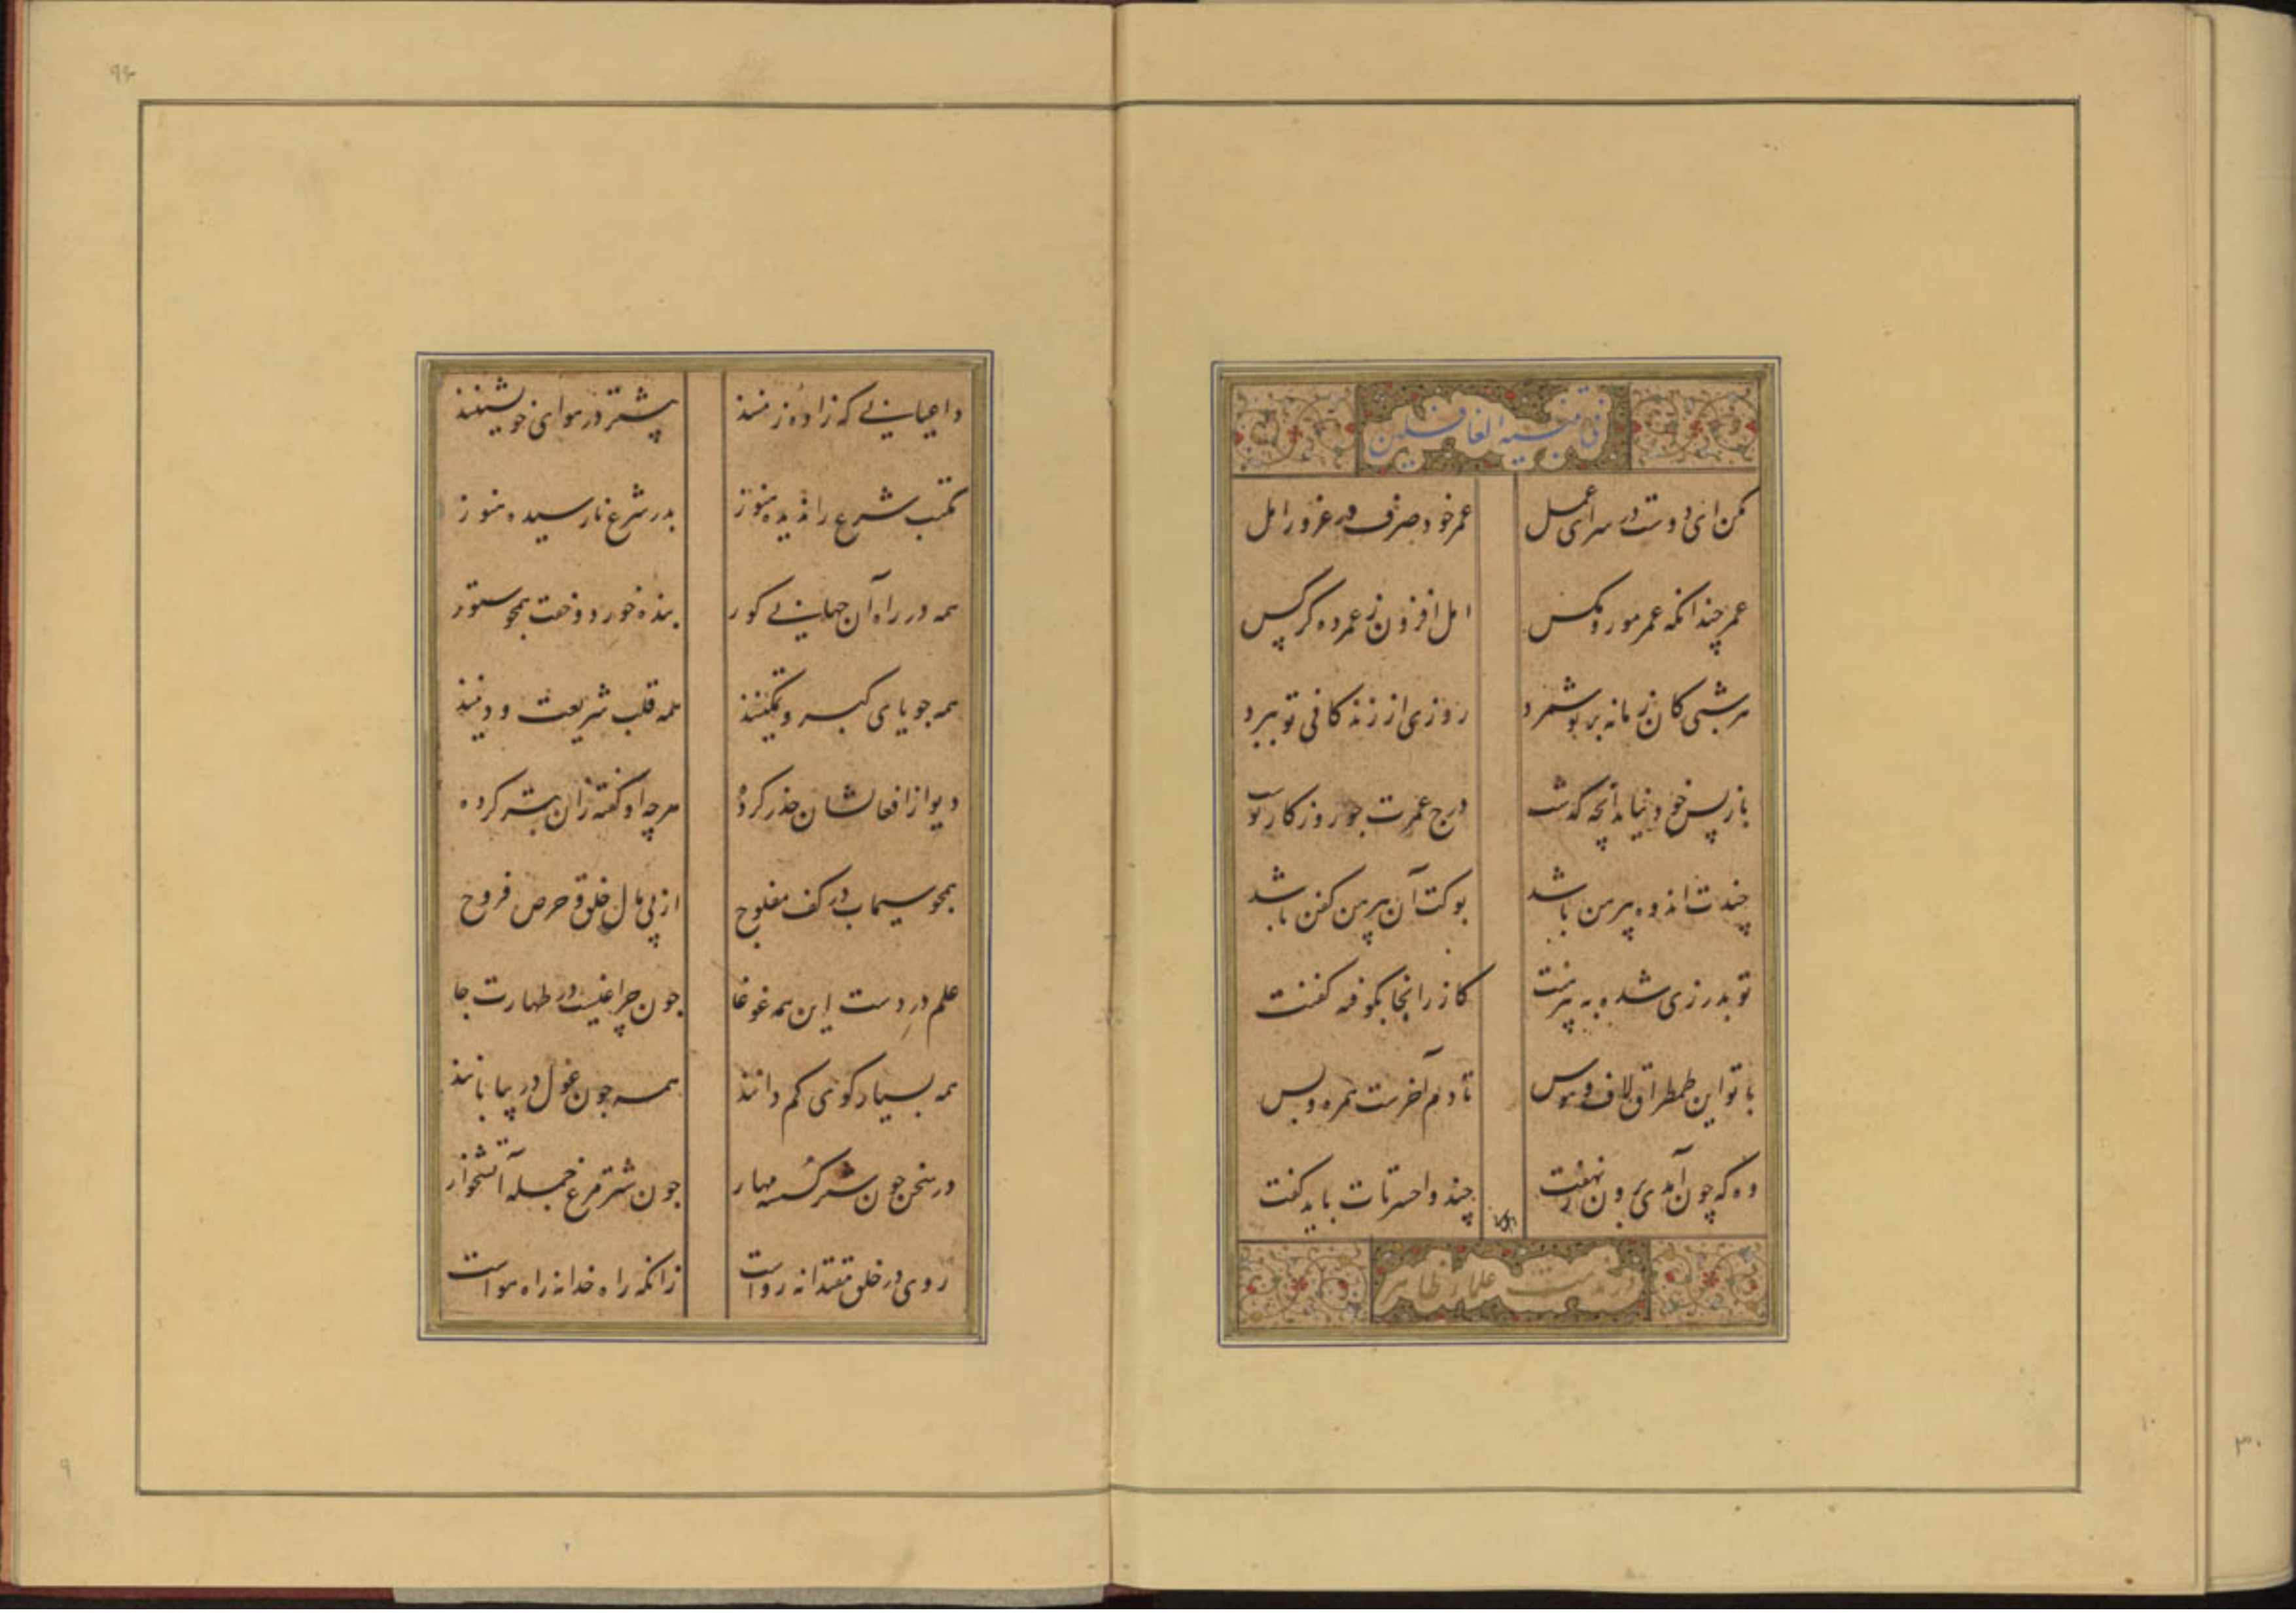 فی تنبیه الغافلین
مکن ای دوست در سرای عمل عمر خود صرف در غرور امل
عمر چندانکه عمر مور و مکس امل افزون ز عمر ده کرکس
هر شبی کان زمانه بر تو شمرد روزی از زندکانی تو ببرد
باز پس خود نیاید آنچه کذشت درج عمرت جو روزکار نوشت
چندت اندوه پیرهن باشد بوکت آن پیرهن کفن باشد
تو بدرزی شده به پیرهنت کازر اینجا بکوفه کفنت
با تو این طمطراق و لاف و هوس تا دم آخرست همره و بس
وه که چون آمدی برون ز نهفت چند واحسرتات باید کفت
در مذمت علماء ظاهر
داعیانی که زاده زمنند بیشتر در هوای خویشتنند
مکتب شرع را ندیده هنوز بدر شرع نارسیده هنوز
همه در راه آن جهانی کور بنده خورد و خفت همجو ستور
همه جویای کبر و تمکینند همه قلب شریعت و دینند
دیو از افعالشان حذر کرده هرچه او کفته زان بتر کرده
همجو سیماب در کف مفلوج از پی مال خلق و حرص فروج
علم در دست این همه غوغا جون چراغیست در طهارت جا
همه بسیار کوی کم دانند همه جون غول در بیابانند
در سخن جون شتر کسسته مهار جون شترمرغ جمله آتشخوار
روی در خلق مقتدا نه رواست زانکه راه خدا نه راه هواست
۹
۱۰
۳۰